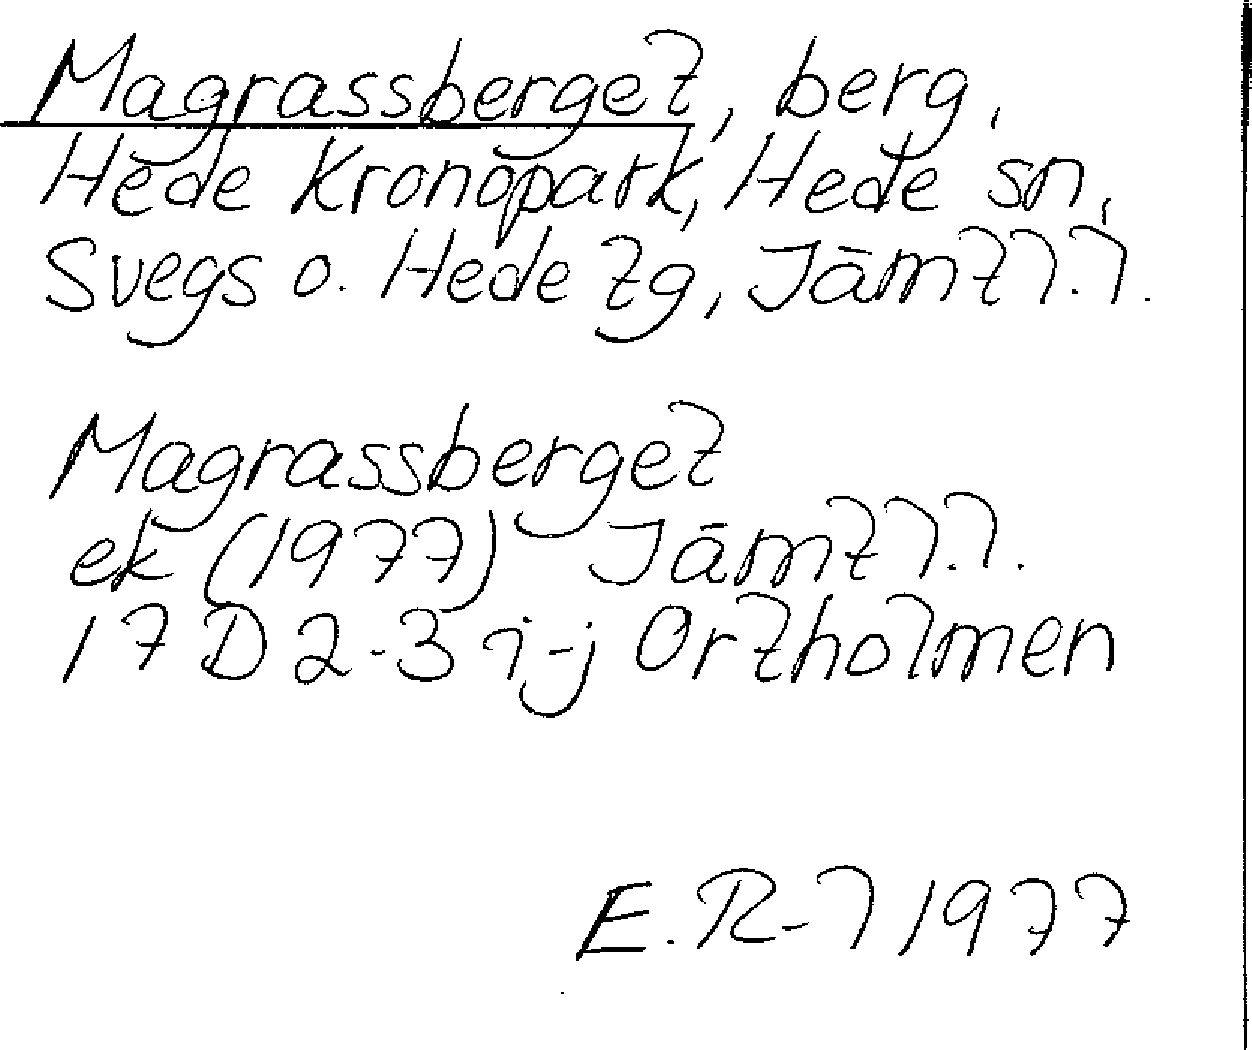 Magrassberget, berg,
Hede Kronopark, Hede sn,
Svegs o. Hede tg, Jämtl.l.
Magrassberget
ek (1977) Jämtl.l.
17 D 2-3 i-j Ortholmen
E. R-l 1977